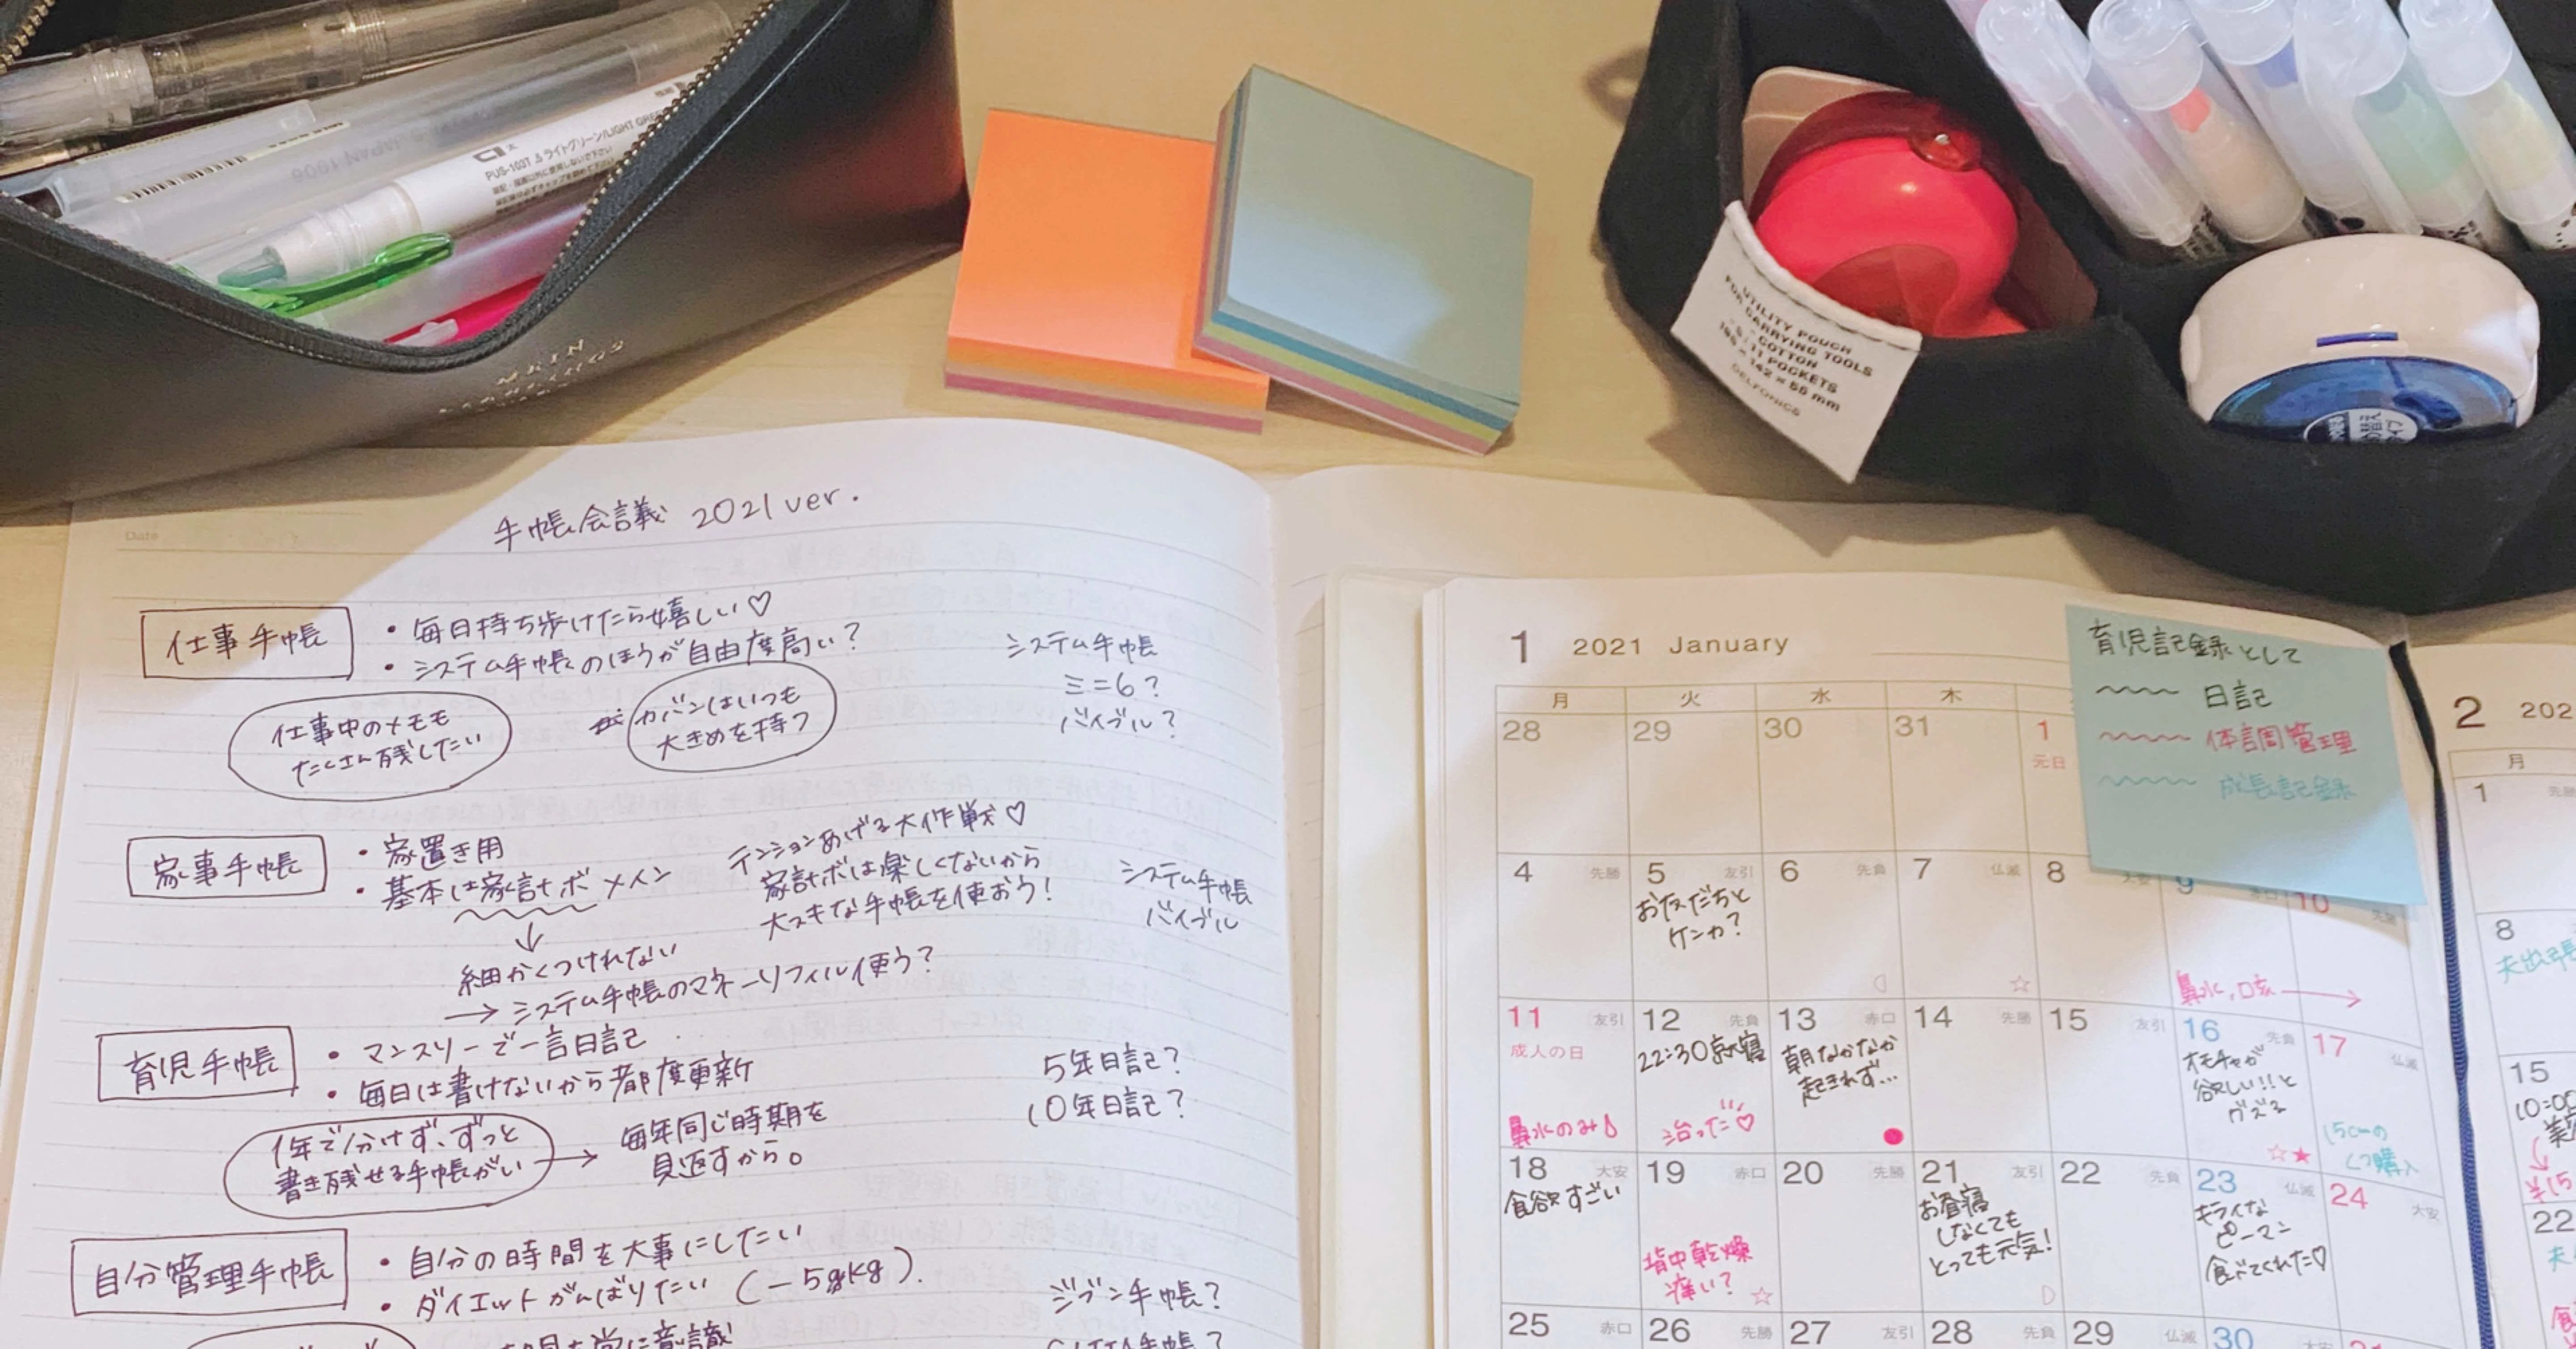 PUS-103T .5 ライトグリーン/LIGHT GRE
JAPAN 1006
UTILITY POUCH
FOR CARRYING TOOLS
COTTON
11 POCKETS
DELFONICS
Date
手帳会議 2021 ver.
仕事手帳
・毎日持ち歩けたら嬉しい♡
・システム手帳のほうが自由度高い?
システム手帳
ミニ6?
バイブル?
仕事中のメモも
たくさん残したい
カバンはいつも
大きめを持つ
家事手帳
・家置き用
・基本は家計ボメイン
テンションあげる大作戦♡
家計ボは楽しくないから
大スキな手帳を使おう!
システム手帳
バイブル
↓
細かくつけれない
→ システム手帳のマネーリフィル使う?
育児手帳
・マンスリーで一言日記
・毎日は書けないから都度更新
5年日記?
10年日記?
1年で分けず、ずっと
書き残せる手帳がいい
→ 毎年同じ時期を
見返すから。
自分管理手帳
・自分の時間を大事にしたい
・ダイエットがんばりたい (-5kg).
ジブン手帳?
常に意識
手帳?
1 2021 January
月 火 水 木
28 29 30 31 1
元日
4 先勝 5 友引 6 先負 7 仏滅 8 大安 9 10 先勝
お友だちと
ケンカ?
鼻水,咳 →
11 友引 12 先負 13 赤口 14 先勝 15 友引 16 先負 17 仏滅
成人の日
22:30就寝
朝なかなか
起きれず…
オモチャが
欲しい!!と
グズる
鼻水のみ
治った♡
☆★
15cmの
くつ購入
18 大安 19 赤口 20 先勝 21 友引 22 先負 23 仏滅 24 大安
食欲すごい
背中乾燥
痒い? ☆
お昼寝
しなくても
とっても元気!
キライな
ピーマン
食べてくれた♡
25 赤口 26 先勝 27 友引 28 先負 29 仏滅 30
育児記録として
日記
体調管理
成長記録
2 202
月
1
8
夫出張
15
10:00
22
夫